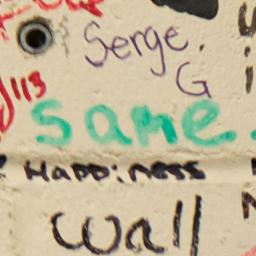 Serge.
G
113
same.
Happiness
wall